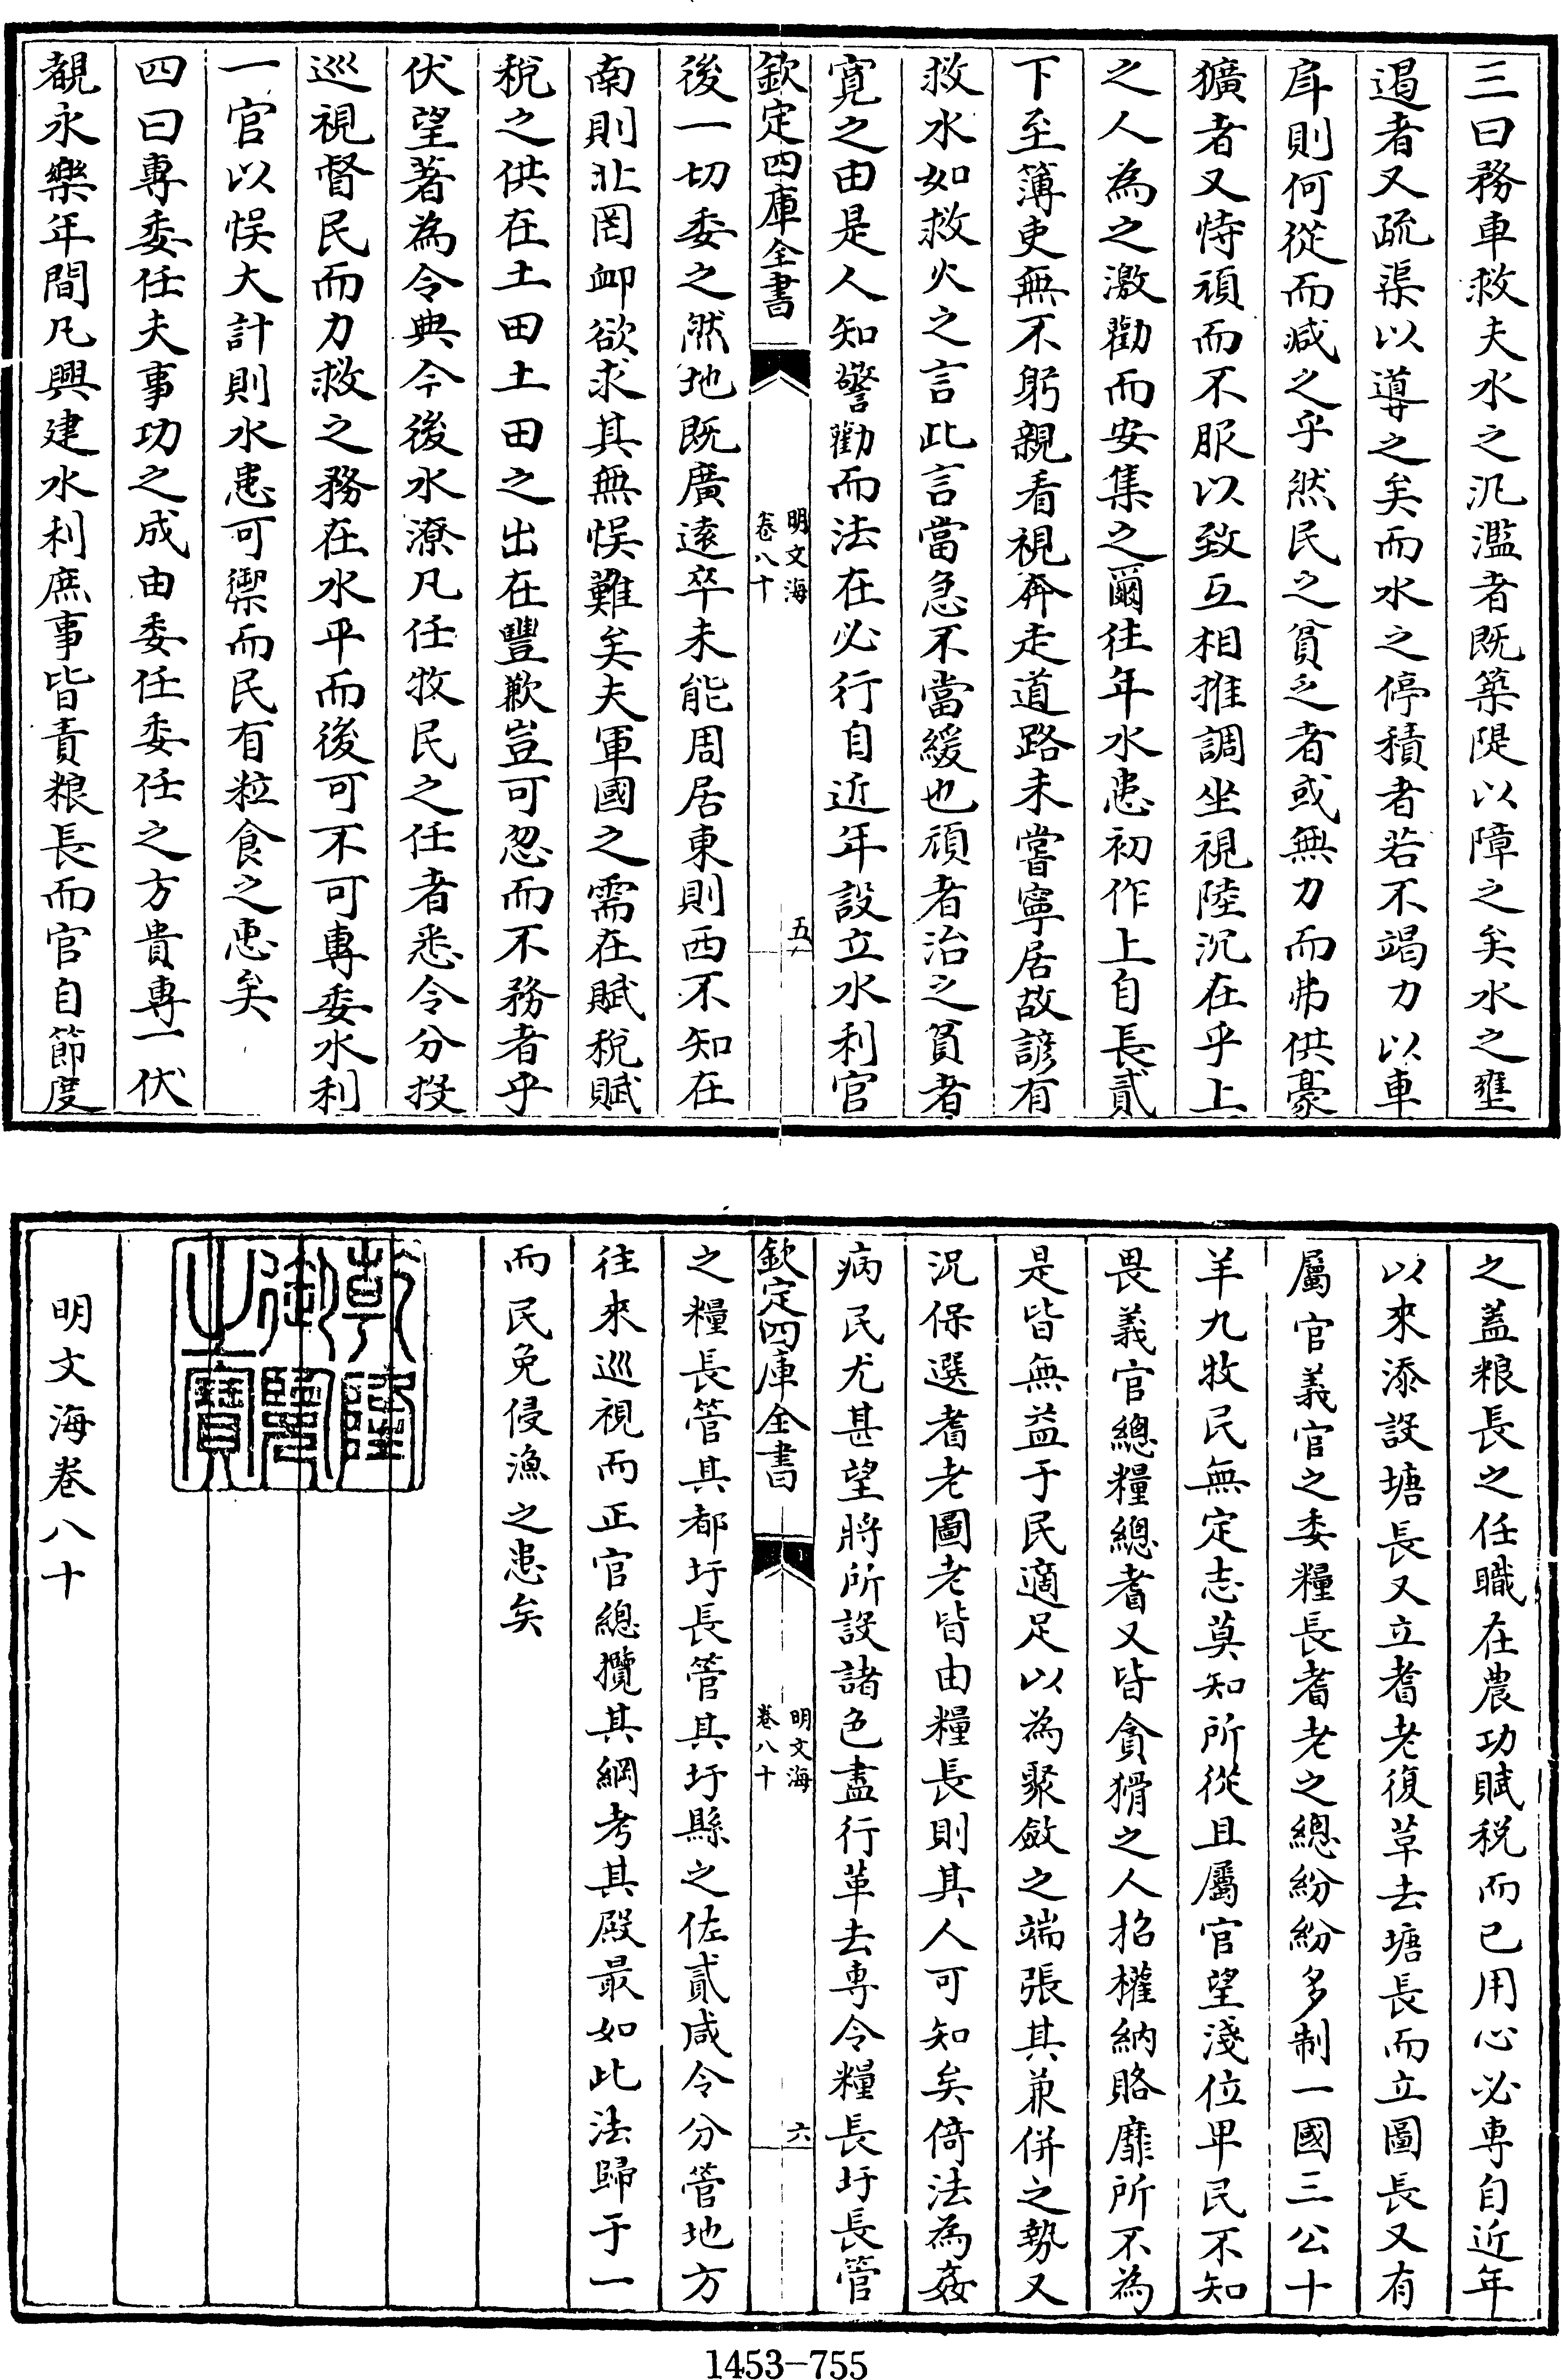 三曰務車救夫水之汎濫者既築隄以障之矣水之壅
遏者又疏渠以導之矣而水之停積者若不竭力以車
戽則何從而減之乎然民之貧乏者或無力而弗供豪
獷者又恃頑而不服以致互相推調坐視陸沉在乎上
之人為之激勸而安集之爾往年水患初作上自長貳
下至簿吏無不躬親看視奔走道路未嘗寧居故諺有
救水如救火之言此言當急不當緩也頑者治之貧者
寛之由是人知警勸而法在必行自近年設立水利官
欽定四庫全書
明文海
卷八十
五
後一切委之然地既廣遠卒未能周居東則西不知在
南則北罔卹欲求其無悞難矣夫軍國之需在賦稅賦
稅之供在土田土田之出在豐歉豈可忽而不務者乎
伏望著為令典今後水潦凡任牧民之任者悉令分投
巡視督民而力救之務在水平而後可不可專委水利
一官以悞大計則水患可禦而民有粒食之惠矣
四曰專委任夫事功之成由委任委任之方貴專一伏
覩永樂年間凡興建水利庶事皆責粮長而官自節度
之蓋粮長之任職在農功賦税而已用心必專自近年
以來添設塘長又立耆老復革去塘長而立圖長又有
屬官義官之委糧長耆老之總紛紛多制一國三公十
羊九牧民無定志莫知所從且屬官望淺位卑民不知
畏義官總糧總耆又皆貪猾之人招權納賂靡所不為
是皆無益于民適足以為聚斂之端張其兼併之勢又
況保選耆老圖老皆由糧長則其人可知矣倚法為姦
病民尤甚望將所設諸色盡行革去専令糧長圩長管
欽定四庫全書
明文海
卷八十
六
之糧長管其都圩長管其圩縣之佐貳咸令分管地方
往來巡視而正官總攬其綱考其殿最如此法歸于一
而民免侵漁之患矣
乾隆
御覽
之寶
明文海卷八十
1453-755